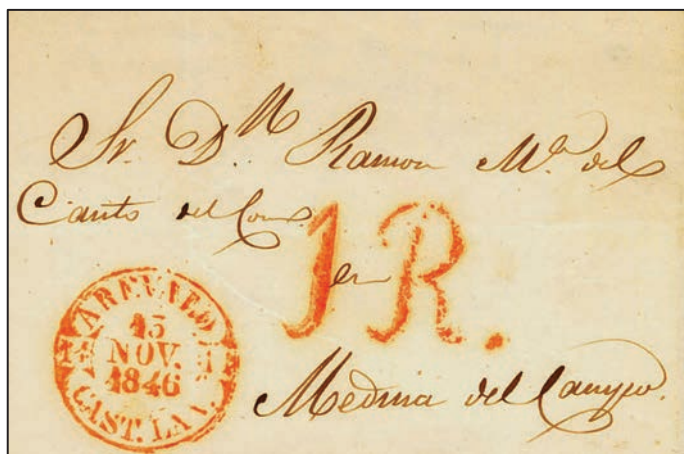 Sr. D.n Ramon M.a del
Canto del Com.o
1 R.
en
AREVALO
15
NOV.
1846
CAST. LA V.
Medina del Campo.